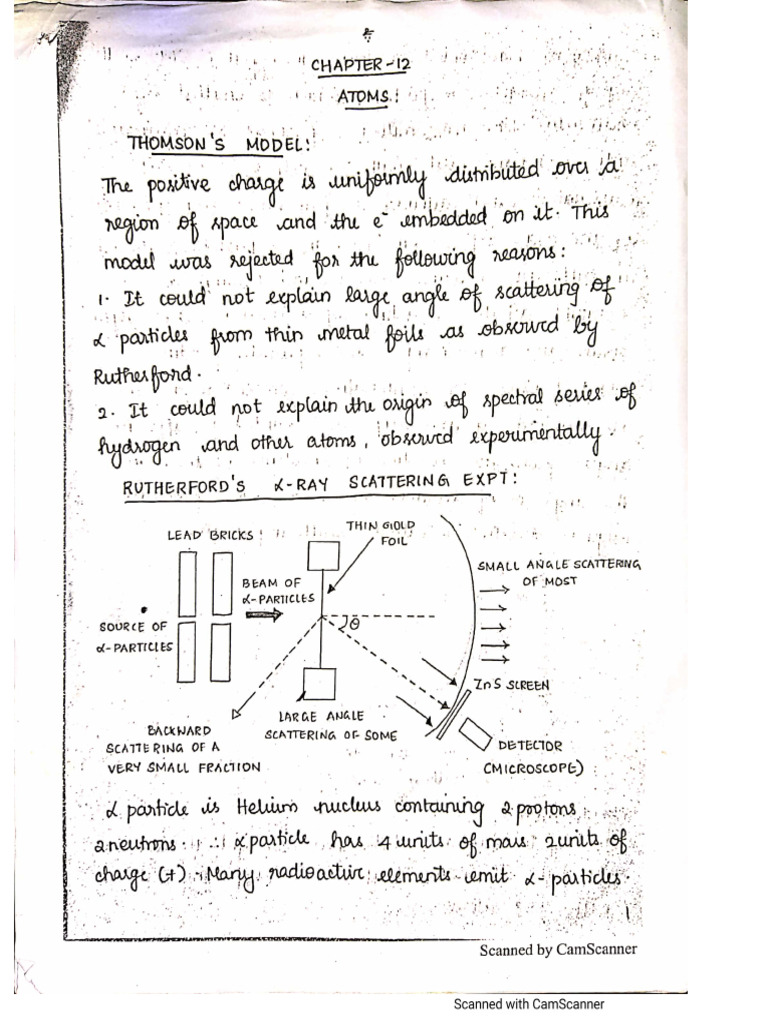 CHAPTER-12
ATOMS:
THOMSON'S MODEL:
The positive charge is uniformly distributed over a
region of space and the e⁻ embedded on it. This
model was rejected for the following reasons:
1. It could not explain large angle of scattering of
α particles from thin metal foils as observed by
Rutherford.
2. It could not explain the origin of spectral series of
hydrogen and other atoms, observed experimentally.
RUTHERFORD'S α-RAY SCATTERING EXPT:
LEAD BRICKS
THIN GOLD
FOIL
SMALL ANGLE SCATTERING
OF MOST
BEAM OF
α-PARTICLES
SOURCE OF
α-PARTICLES
θ
ZnS SCREEN
BACKWARD
SCATTERING OF A
VERY SMALL FRACTION
LARGE ANGLE
SCATTERING OF SOME
DETECTOR
(MICROSCOPE)
α particle is Helium nucleus containing 2 protons
2 neutrons. ∴ α particle has 4 units of mass 2 units of
charge (+). Many radioactive elements emit α-particles.
1
Scanned by CamScanner
Scanned with CamScanner